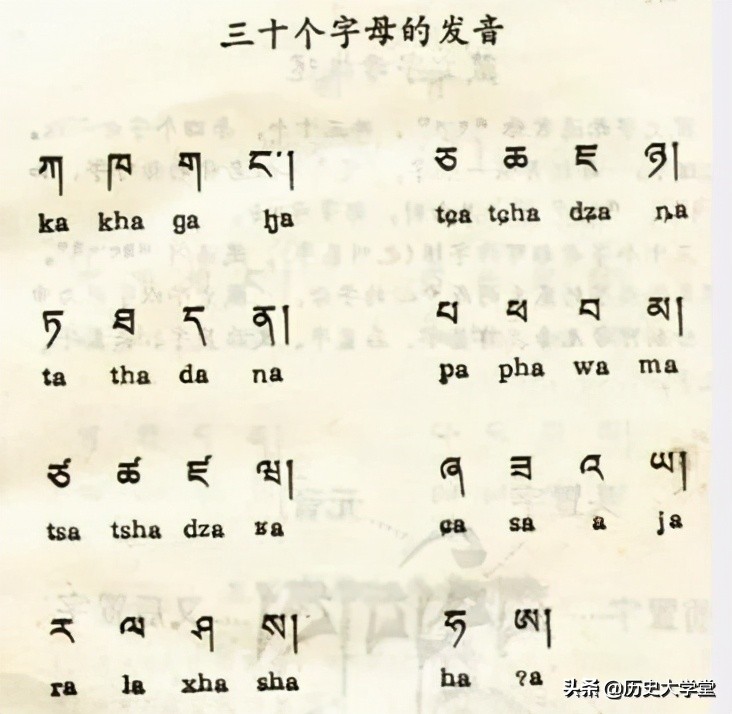 三十个字母的发音
ཀ ཁ ག ང་། ཅ ཆ ཇ ཉ།
ka kha ga ŋa tɕa tɕha dʑa ȵa
ཏ ཐ ད ན། པ ཕ བ མ།
ta tha da na pa pha wa ma
ཙ ཚ ཛ ཝ། ཞ ཟ འ ཡ།
tsa tsha dza ʁa ɕa sa a ja
ར ལ ཤ ས། ཧ ཨ།
ra la xha sha ha ʔa
头条 @历史大学堂